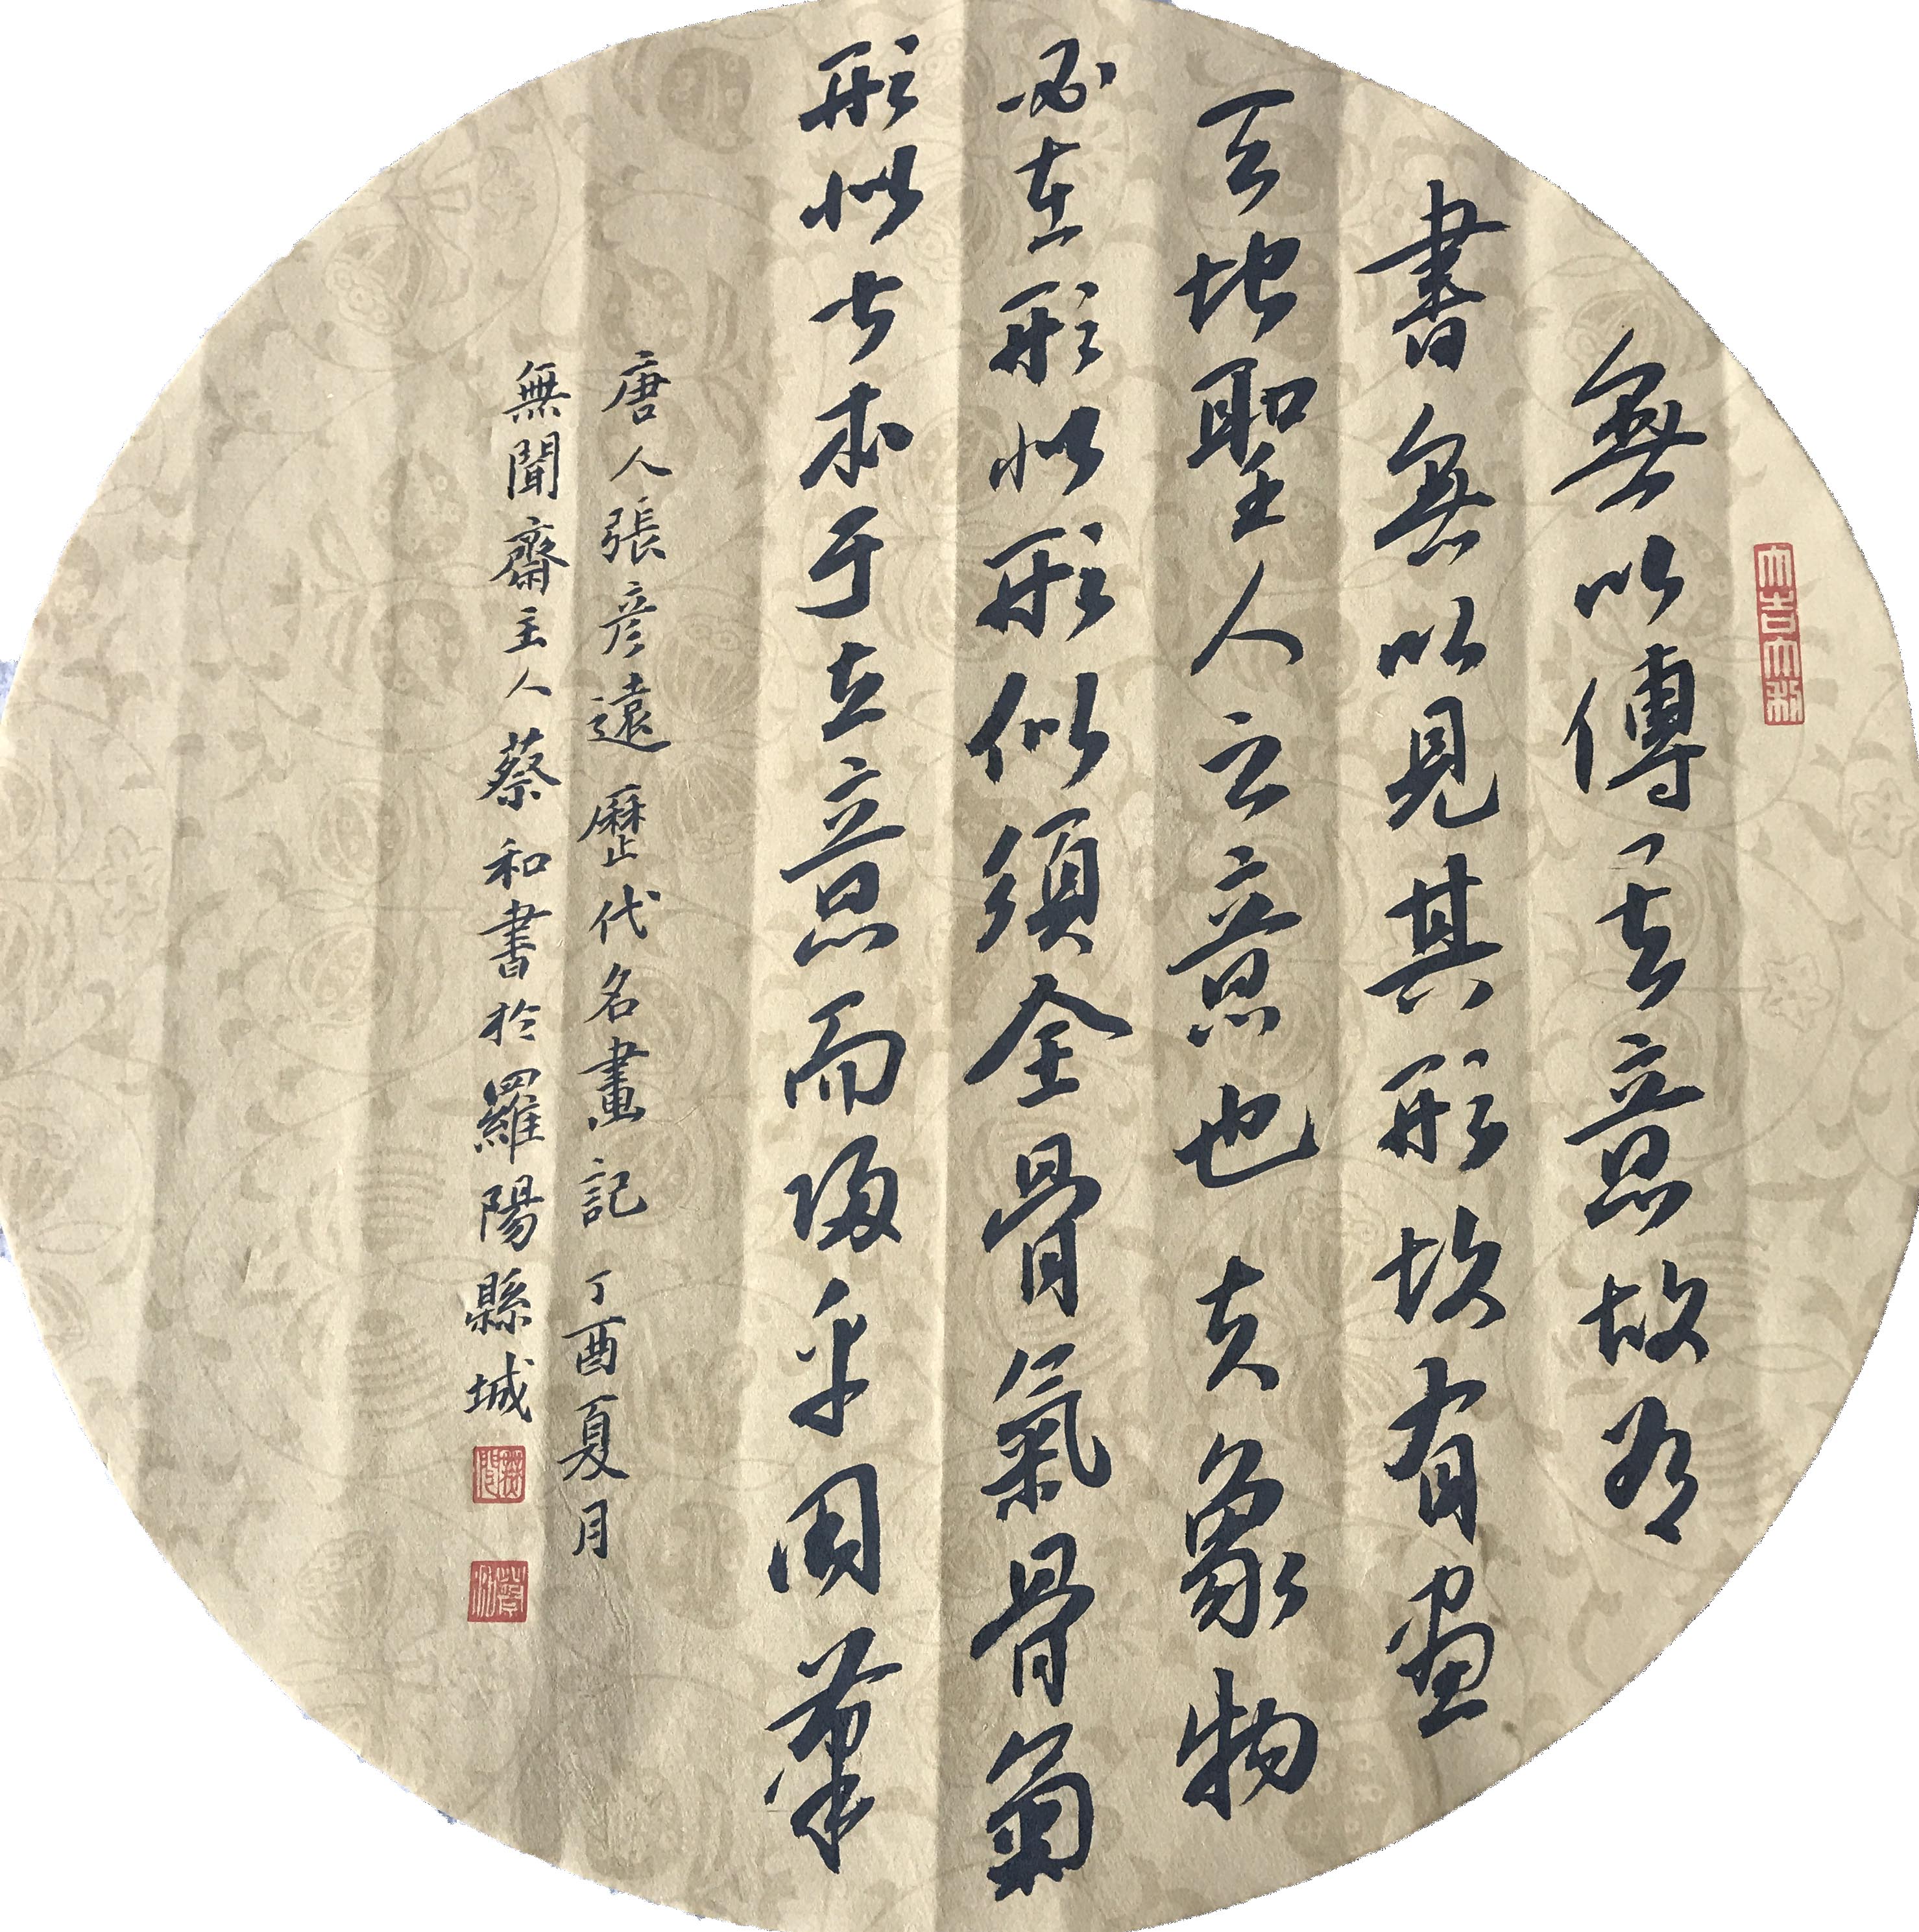 大吉大利
無以傳其意故有
書無以見其形故有畫
天地聖人之意也夫象物
必在形似形似須全骨氣骨氣
形似皆本于立意而歸乎用筆
唐人張彦遠歷代名畫記丁酉夏月
無聞齋主人蔡和書於羅陽縣城
無聞